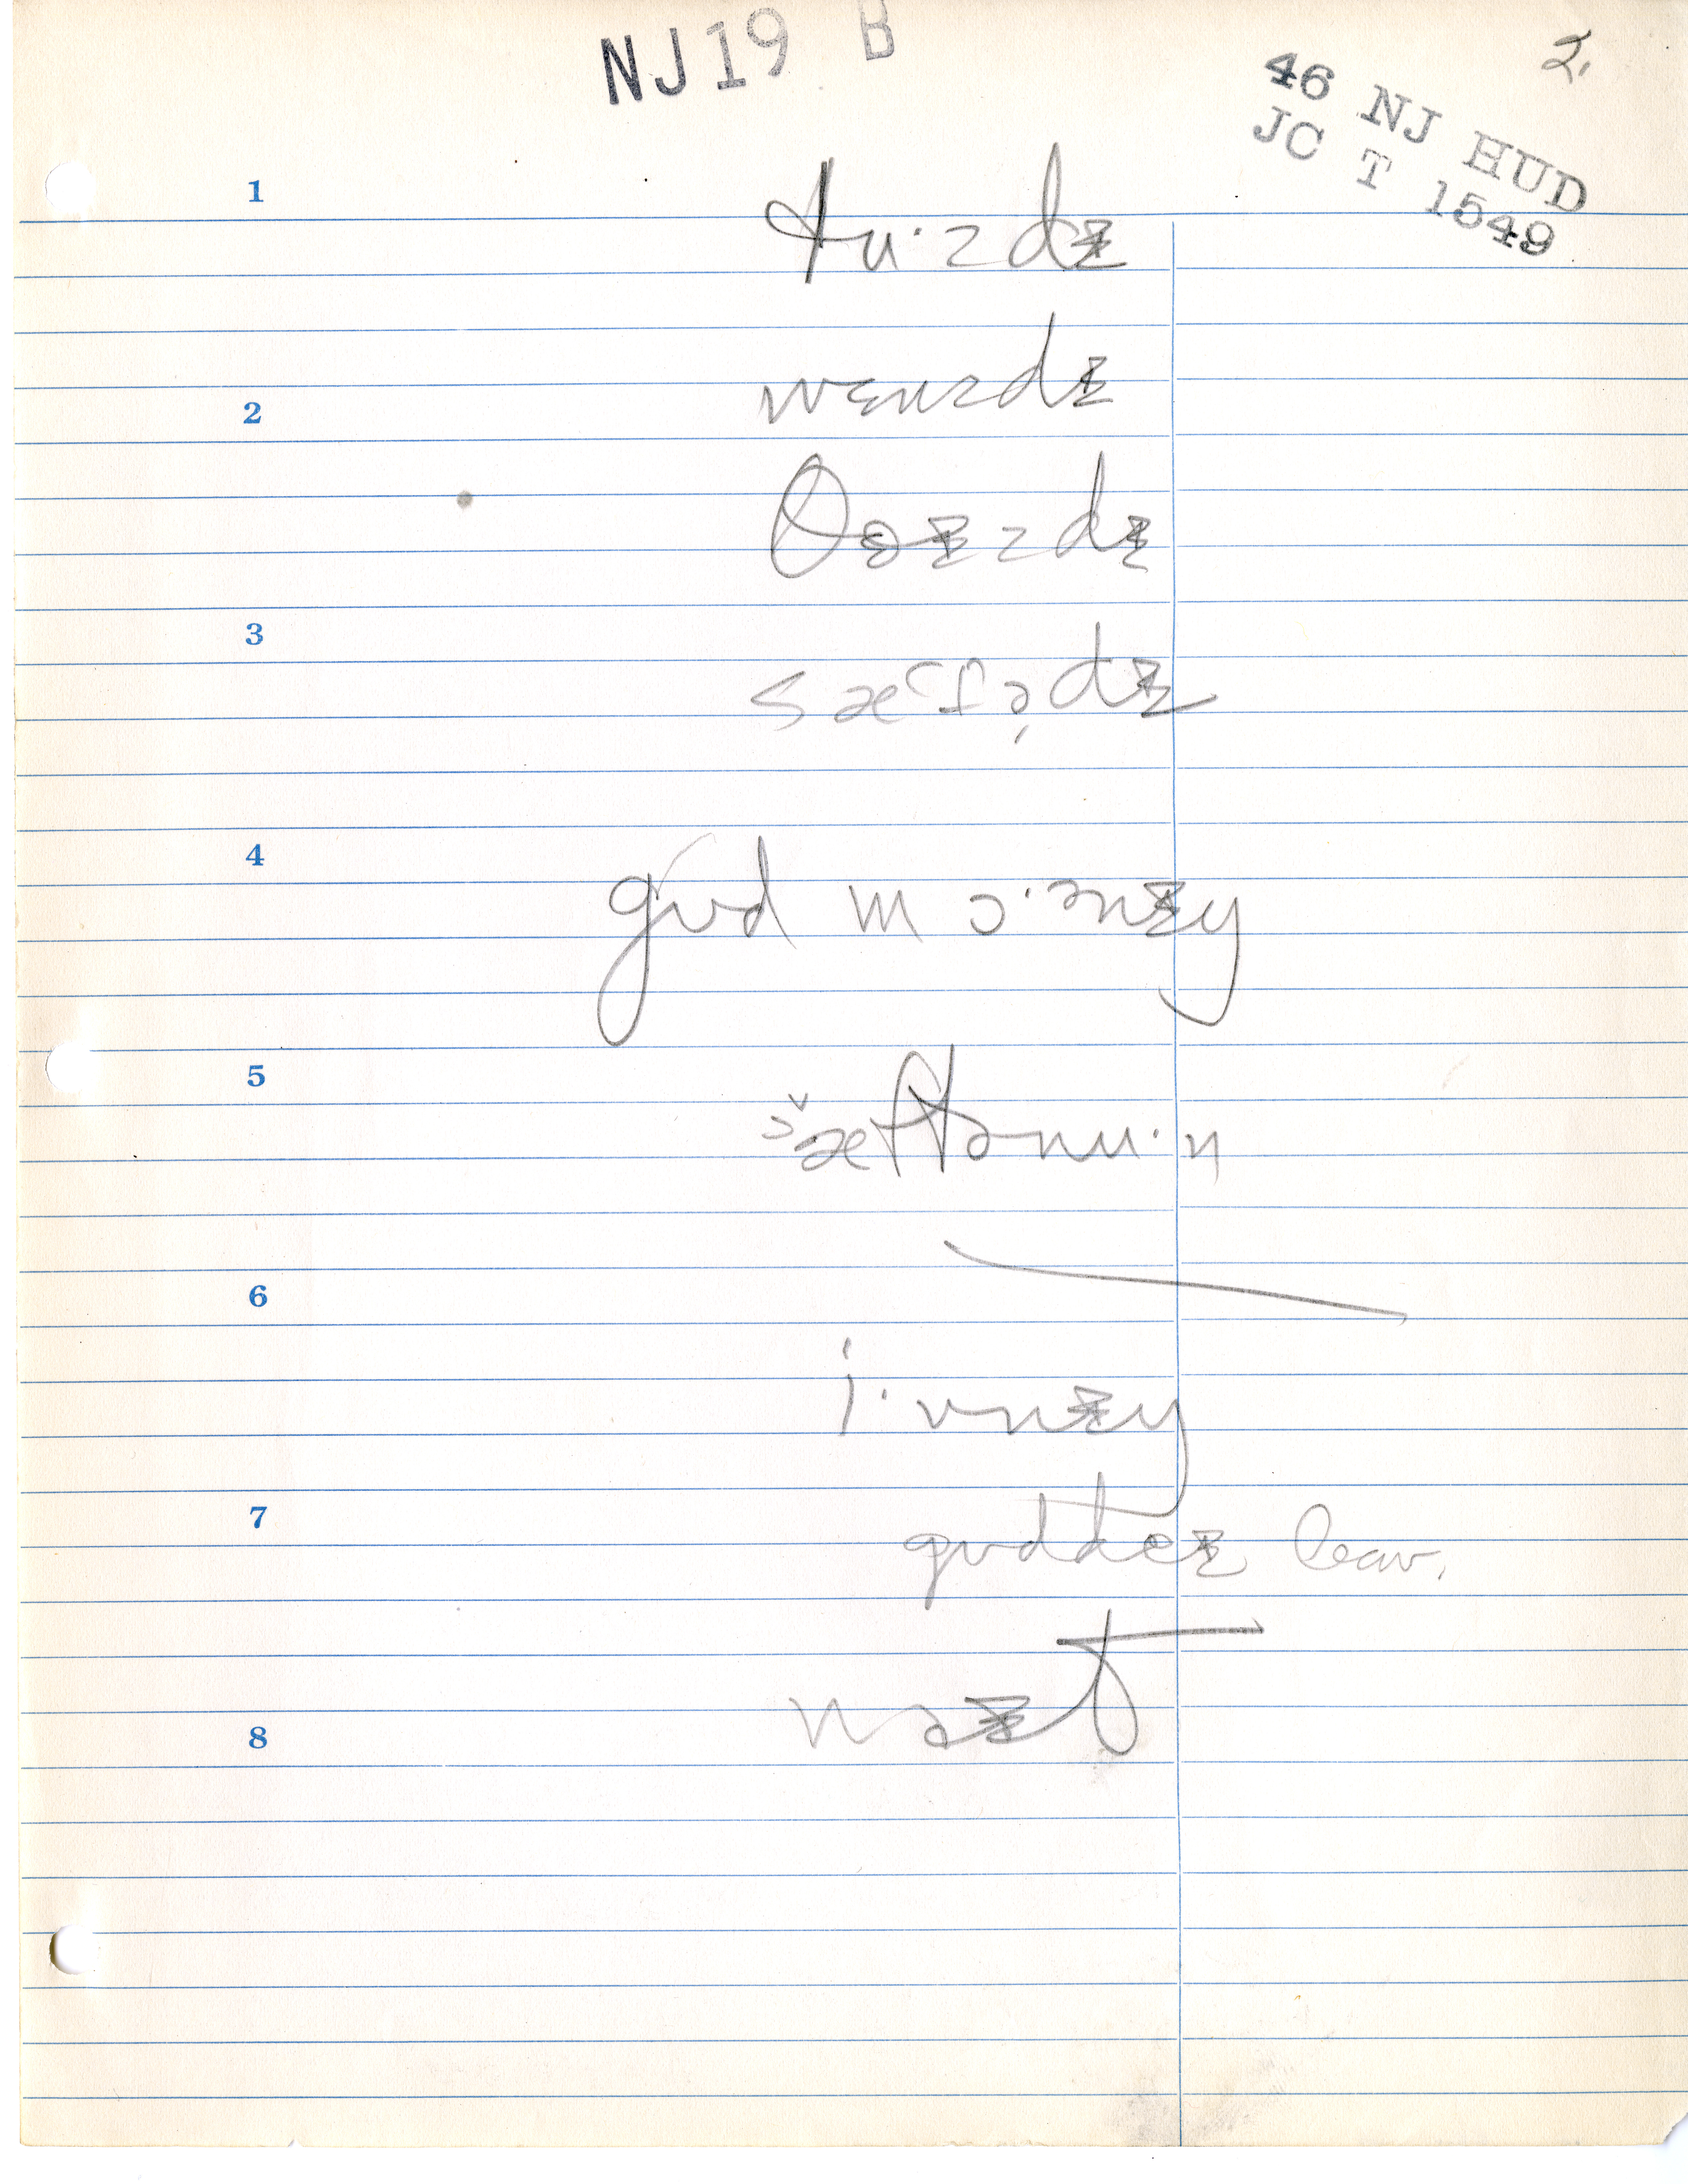 NJ19 B
2.
46 NJ HUD
JC T 1549
1
tu·zdɪ
2
wɛnzdɪ
θɵɪzdɪ
3
sæˤɾə̦dɪ
4
gʊd mɔ·ənɪŋ
5
æftənu·n
6
i·vnɪŋ
7
gʊddeɪ leav.
8
nəɪt